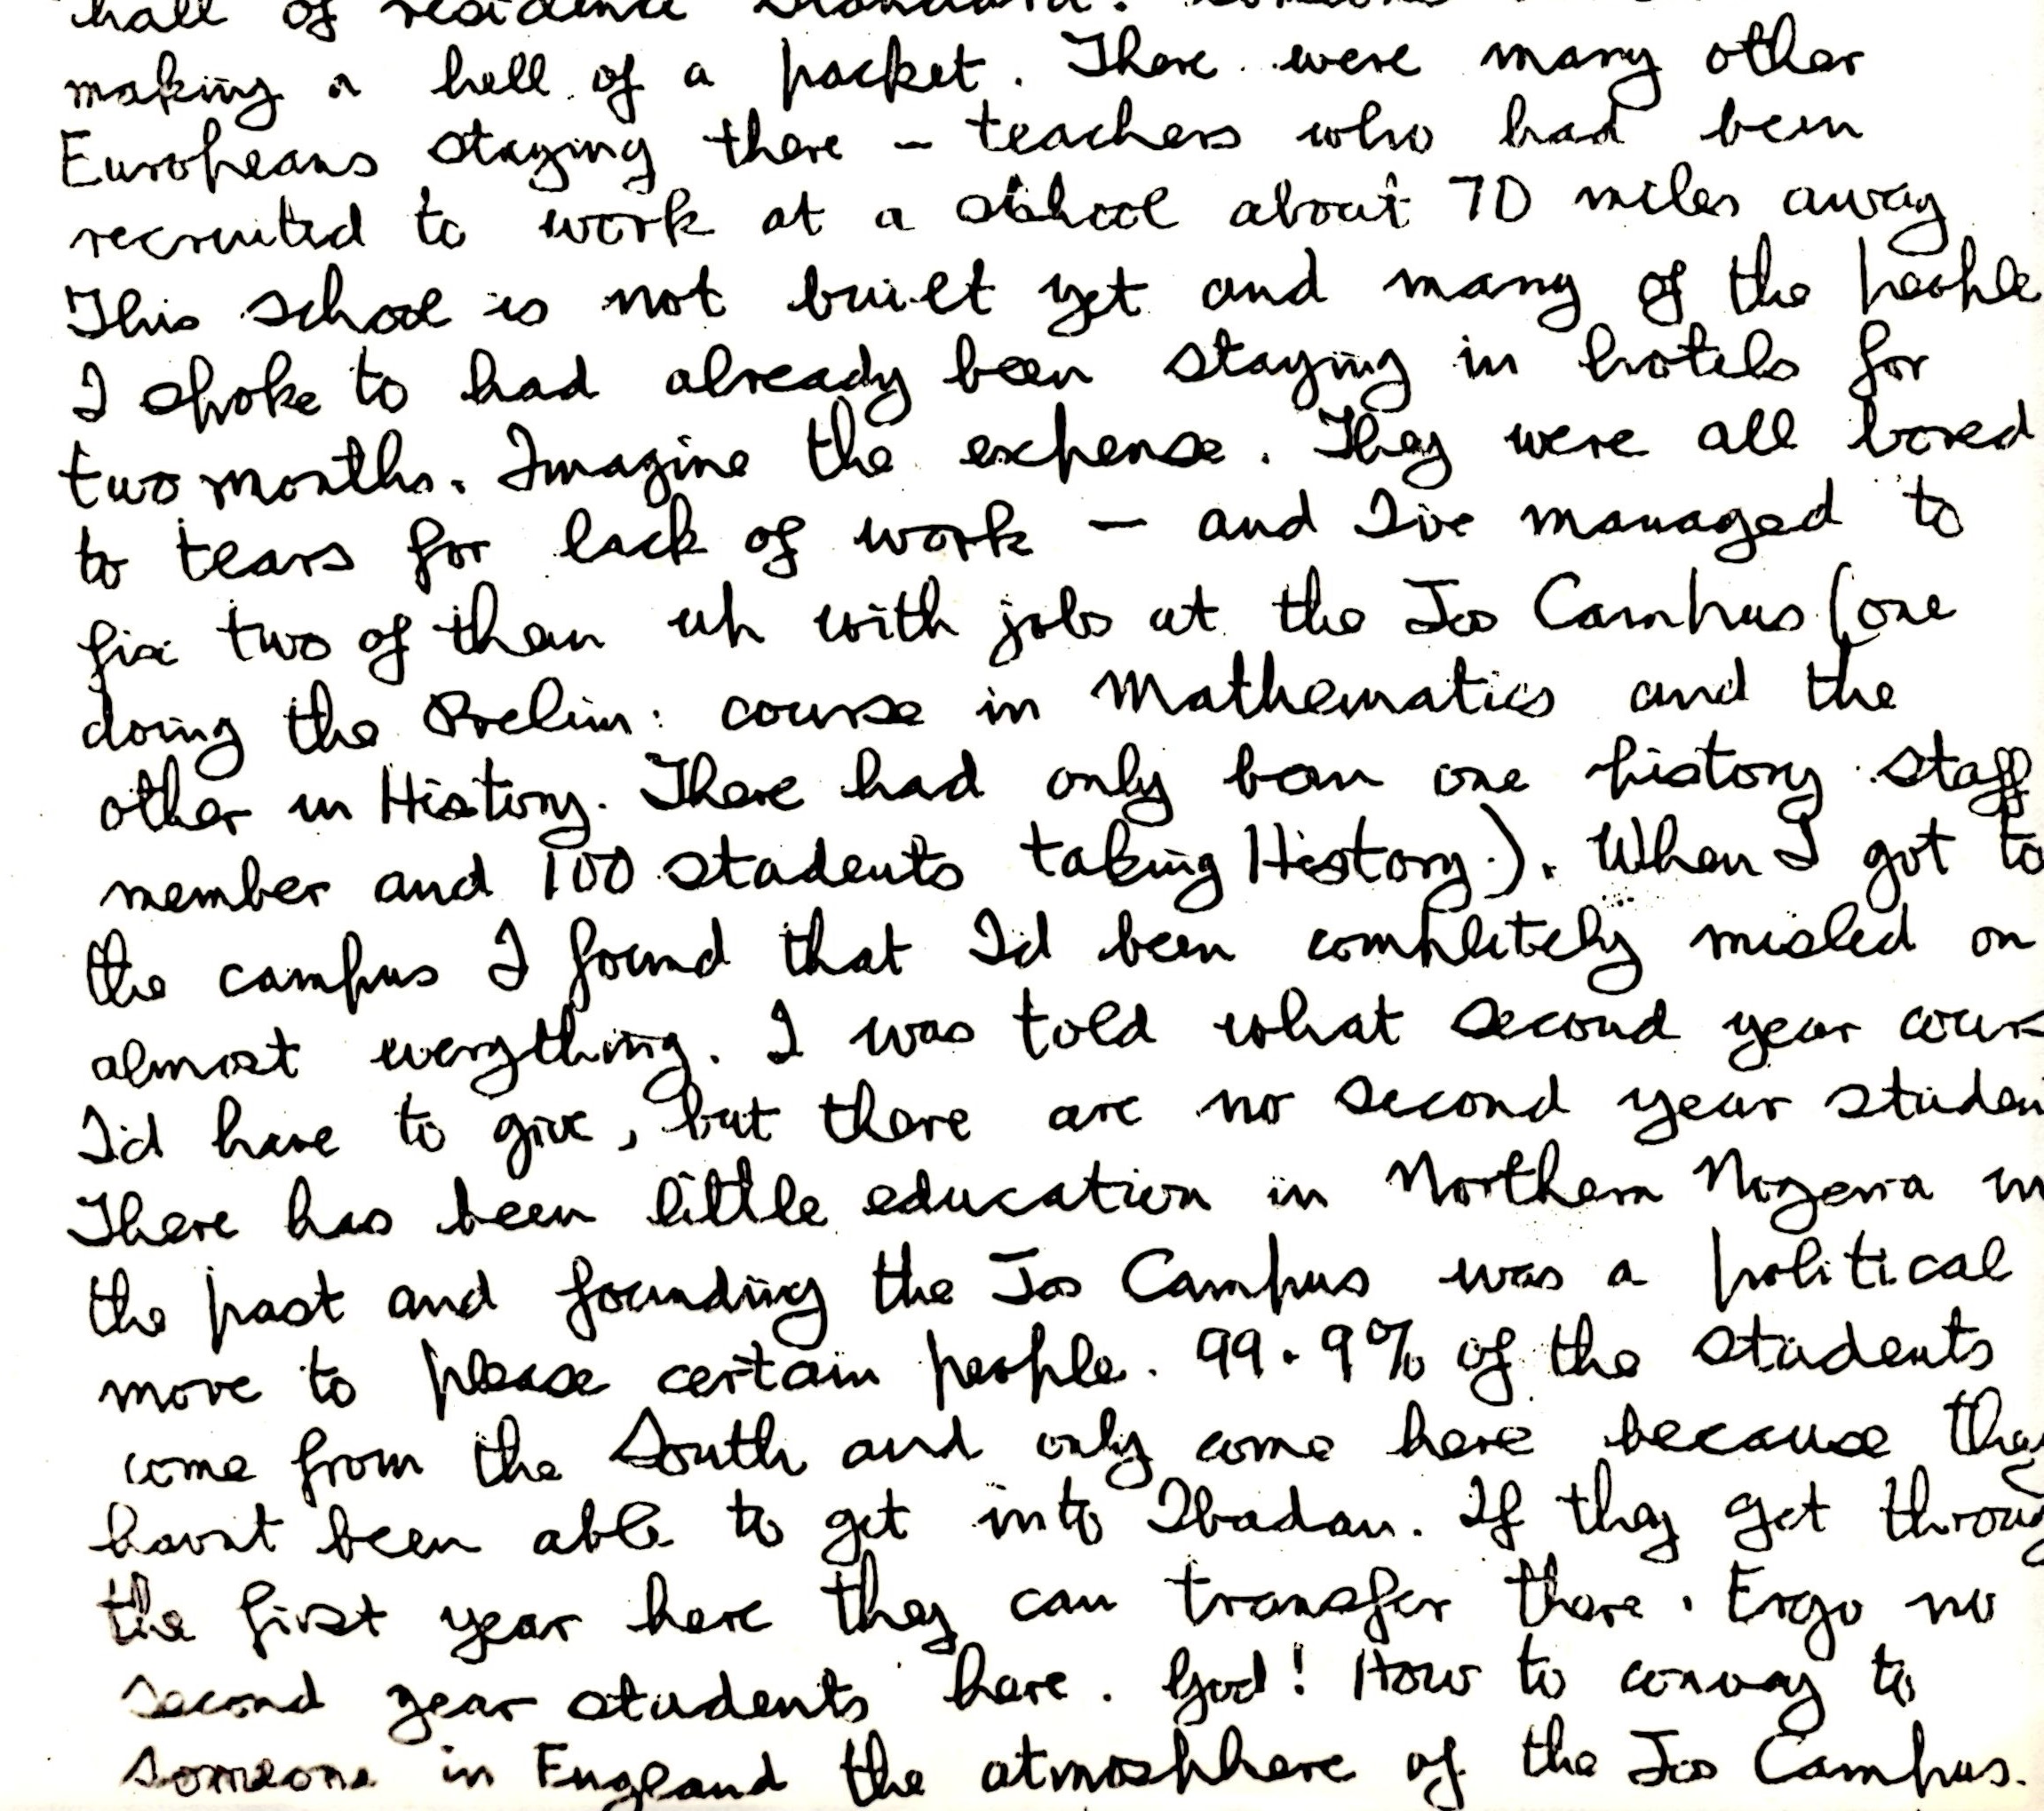 hall of residence standard.
making a hell of a packet. There were many other
Europeans staying there - teachers who had been
recruited to work at a school about 70 miles away
This school is not built yet and many of the people
I spoke to had already been staying in hotels for
two months. Imagine the expense. They were all bored
to tears for lack of work - and I've managed to
fix two of them up with jobs at the Jos Campus (one
doing the Prelim: course in Mathematics and the
other in History. There had only been one history staff
member and 100 students taking History.). When I got to
the campus I found that I'd been completely misled on
almost everything. I was told what second year cours
I'd have to give, but there are no second year studen
There has been little education in Northern Nigeria in
the past and founding the Jos Campus was a political
move to please certain people. 99.9% of the students
come from the South and only come here because they
havnt been able to get into Ibadan. If they get throug
the first year here they can transfer there. Ergo no
second year students here. God! How to convey to
someone in England the atmosphere of the Jos Campus.